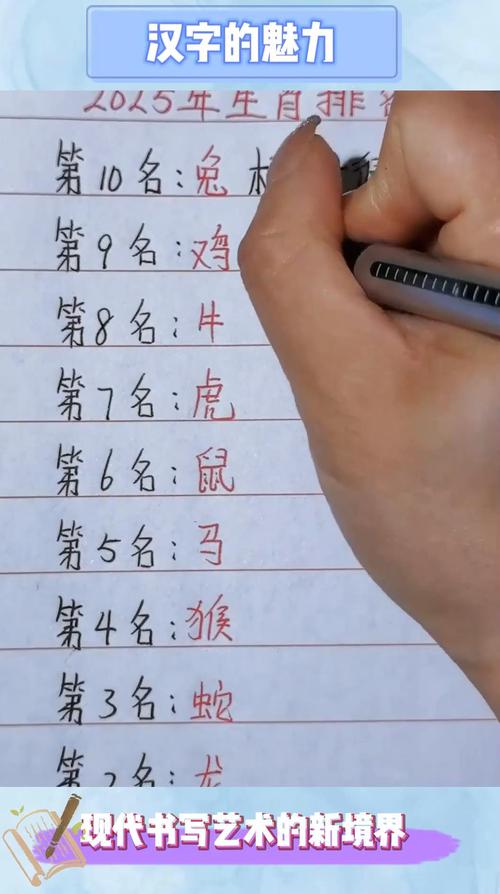 汉字的魅力
2025年生肖排
第10名:兔
第9名:鸡
第8名:牛
第7名:虎
第6名:鼠
第5名:马
第4名:猴
第3名:蛇
第2名:龙
现代书写艺术的新境界